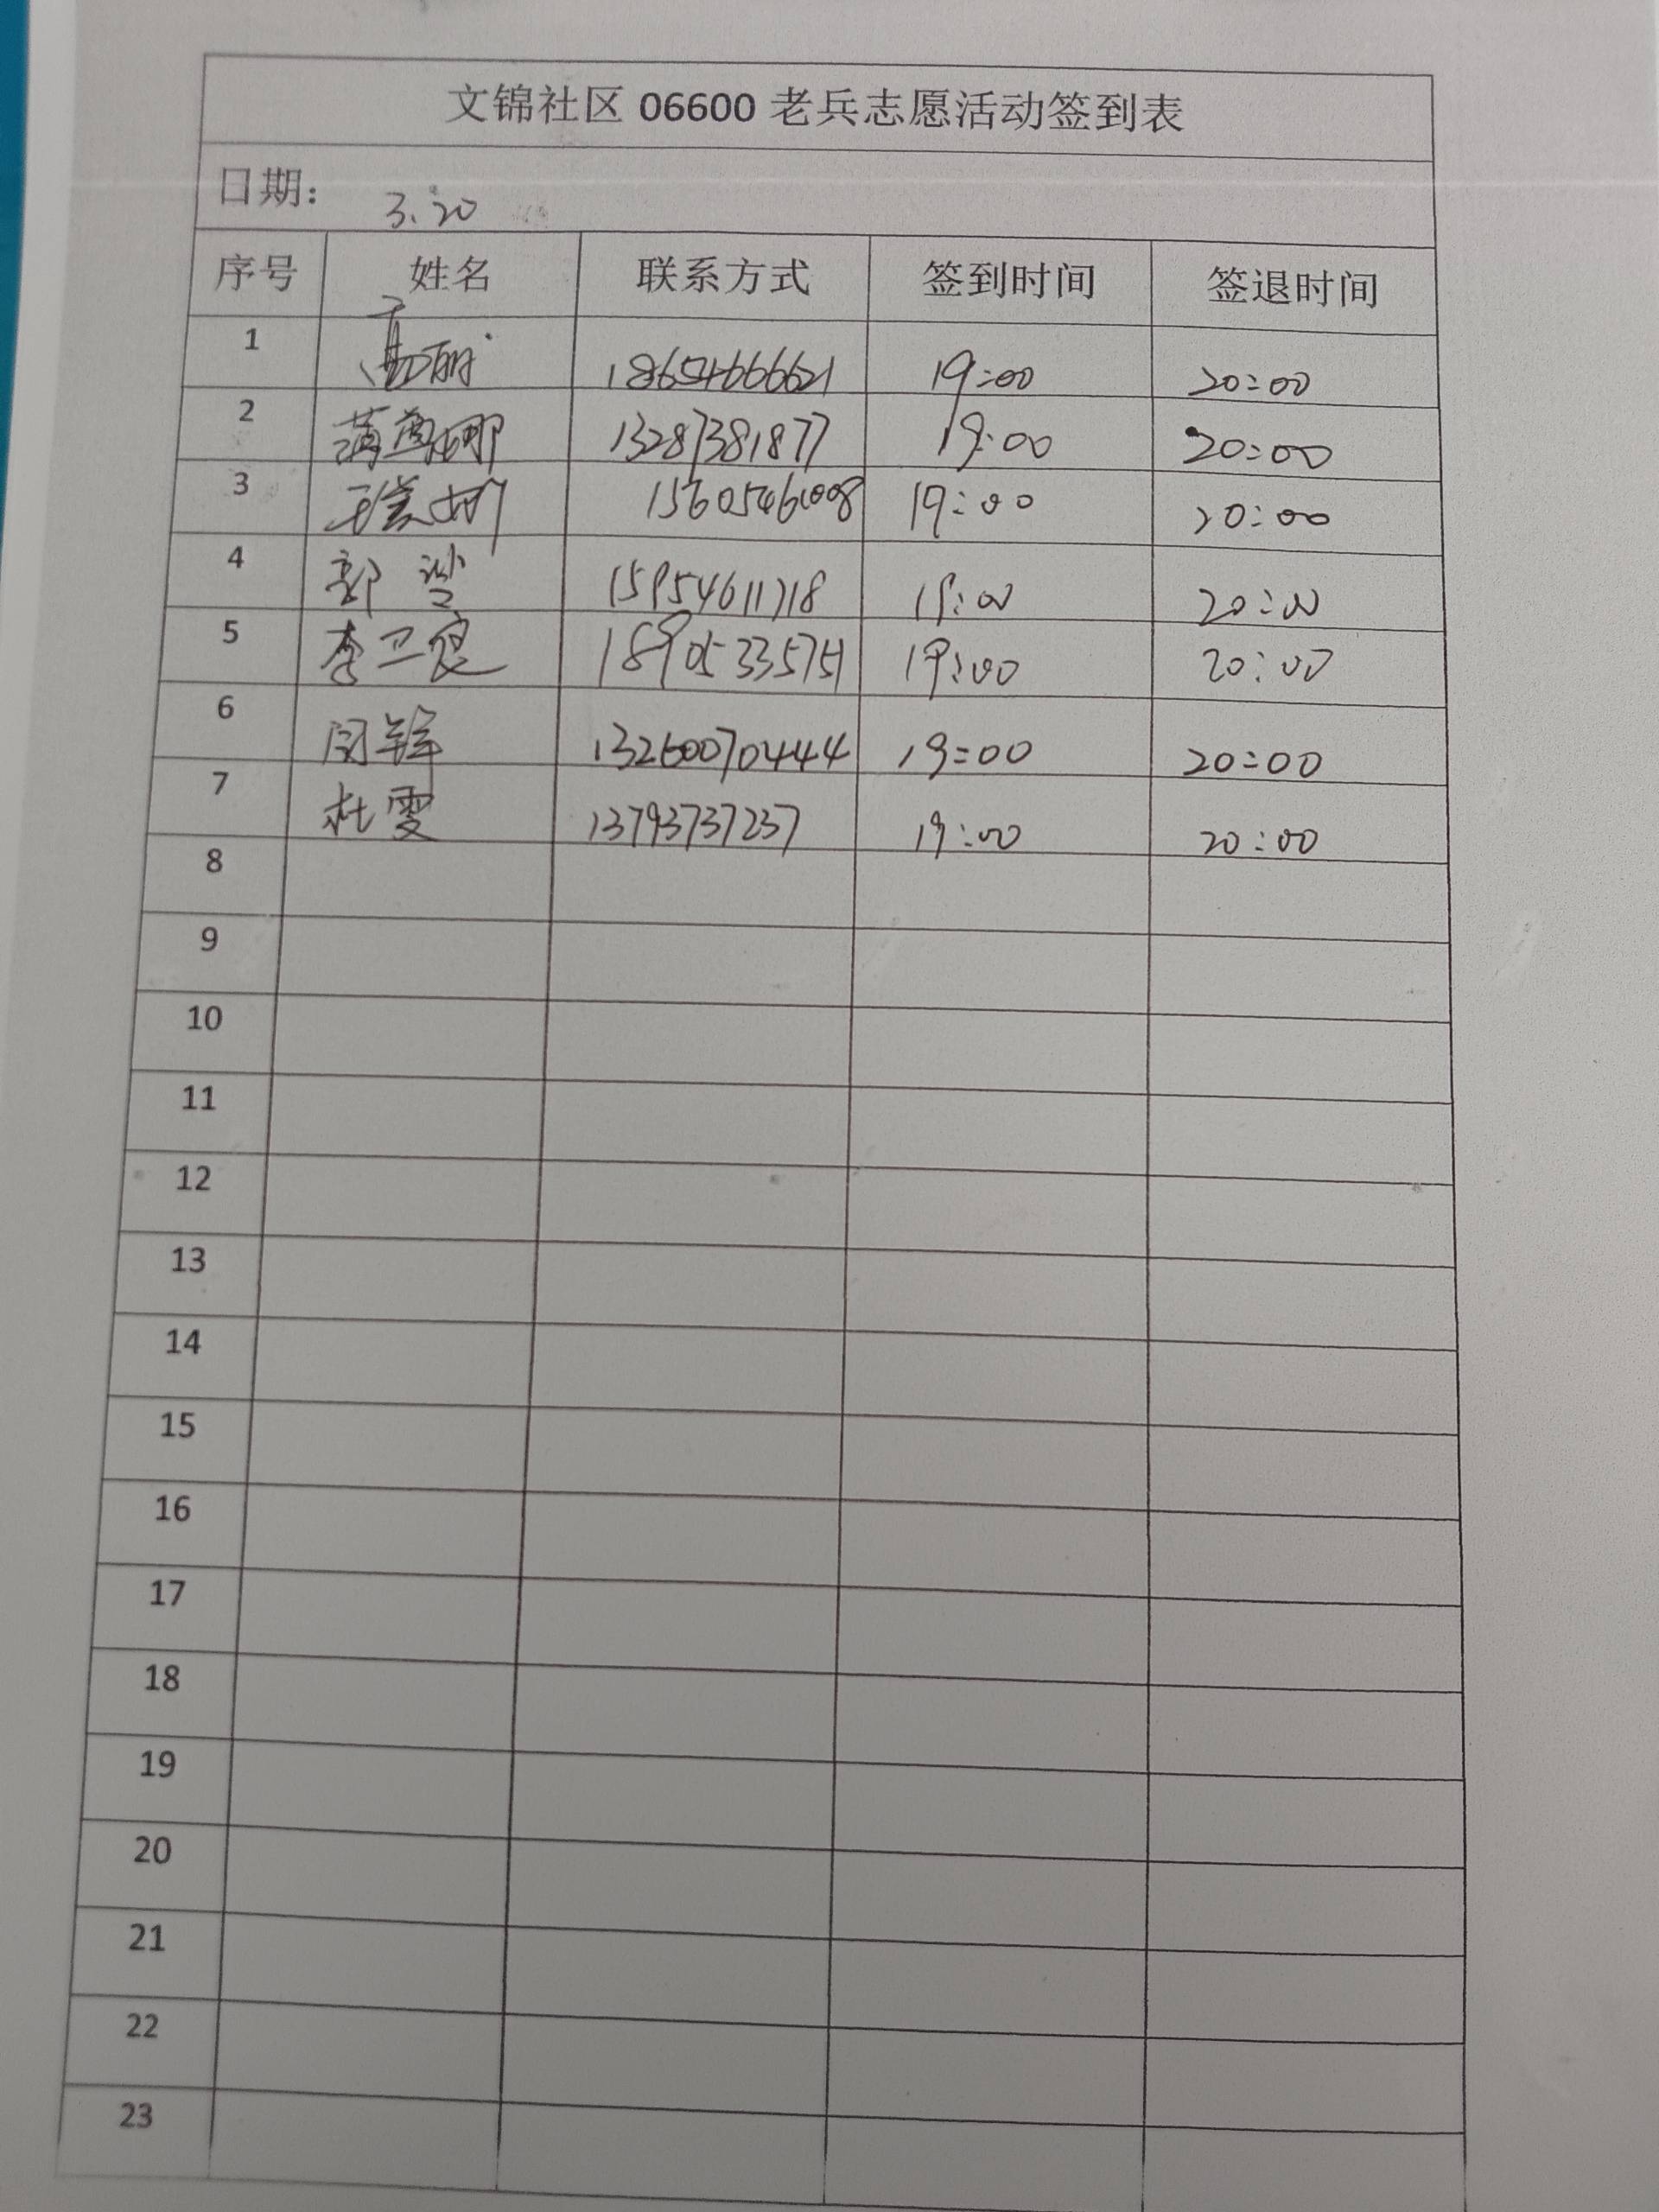 文锦社区 06600 老兵志愿活动签到表
日期： 3.20
序号 姓名 联系方式 签到时间 签退时间
1 高丽 18654666621 19:00 20:00
2 13287381877 19:00 20:00
3 19:00 20:00
4 郭 15954611718 19:00 20:00
5 李卫良 18905335751 19:00 20:00
6 闫锋 13260070444 19:00 20:00
7 杜雯 13793737237 19:00 20:00
8
9
10
11
12
13
14
15
16
17
18
19
20
21
22
23